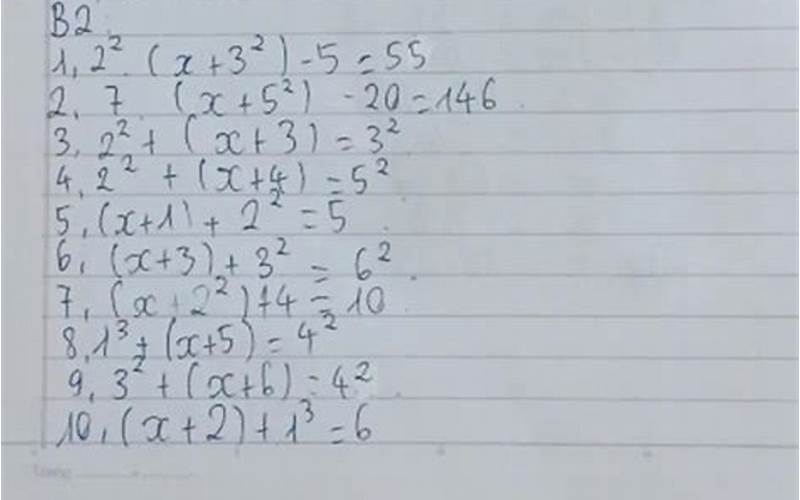 B2
1, 2². (x+3²) -5 = 55
2, 7 (x+5²) -20=146
3, 2² + (x+3) = 3²
4, 2² + (x+4) = 5²
5, (x+1) + 2² = 5
6, (x+3) + 3² = 6²
7, (x+2²) +4 = 10
8, 1³ + (x+5) = 4²
9, 3² + (x+6) = 4²
10, (x+2) + 1³ = 6